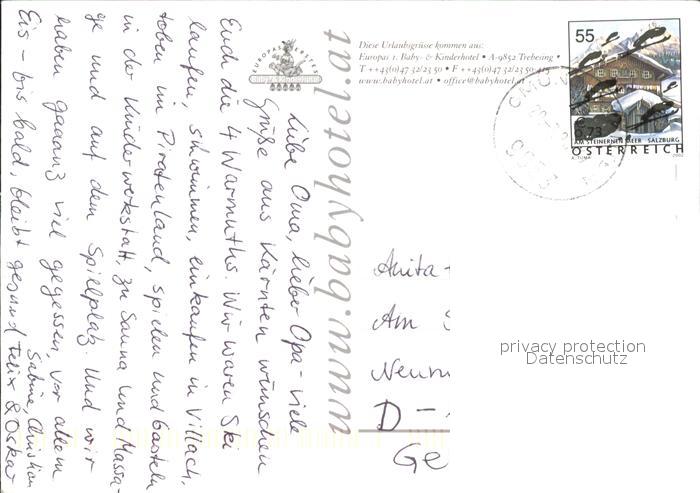 Liebe Oma, lieber Opa - viele
Grüße aus Kärnten wünschen
Euch die 4 Warmuths. Wir waren Ski
laufen, schwimmen, einkaufen in Villach,
toben im Piratenland, spielen und basteln
in der Kinderwerkstatt, zu Sauna und Massa-
ge und auf dem Spielplatz. Und wir
haben gaaanz viel gegessen, vor allem
Eis - bis bald, bleibt gesund Felix & Oskar
Sabine, Christian
www.babyhotel.at
EUROPAS ERSTES
Diese Urlaubsgrüsse kommen aus:
Europas 1. Baby- & Kinderhotel • A-9852 Trebesing •
T ++43(0)47 32/23 50 • F ++43(0)47 32/23 50-415
www.babyhotel.at • office@babyhotel.at
55
0,73
AM STEINERNEN MEER SALZBURG
ÖSTERREICH
A. TUMA 2002
Anita
Am
Neum
D -
Ge
privacy protection
Datenschutz